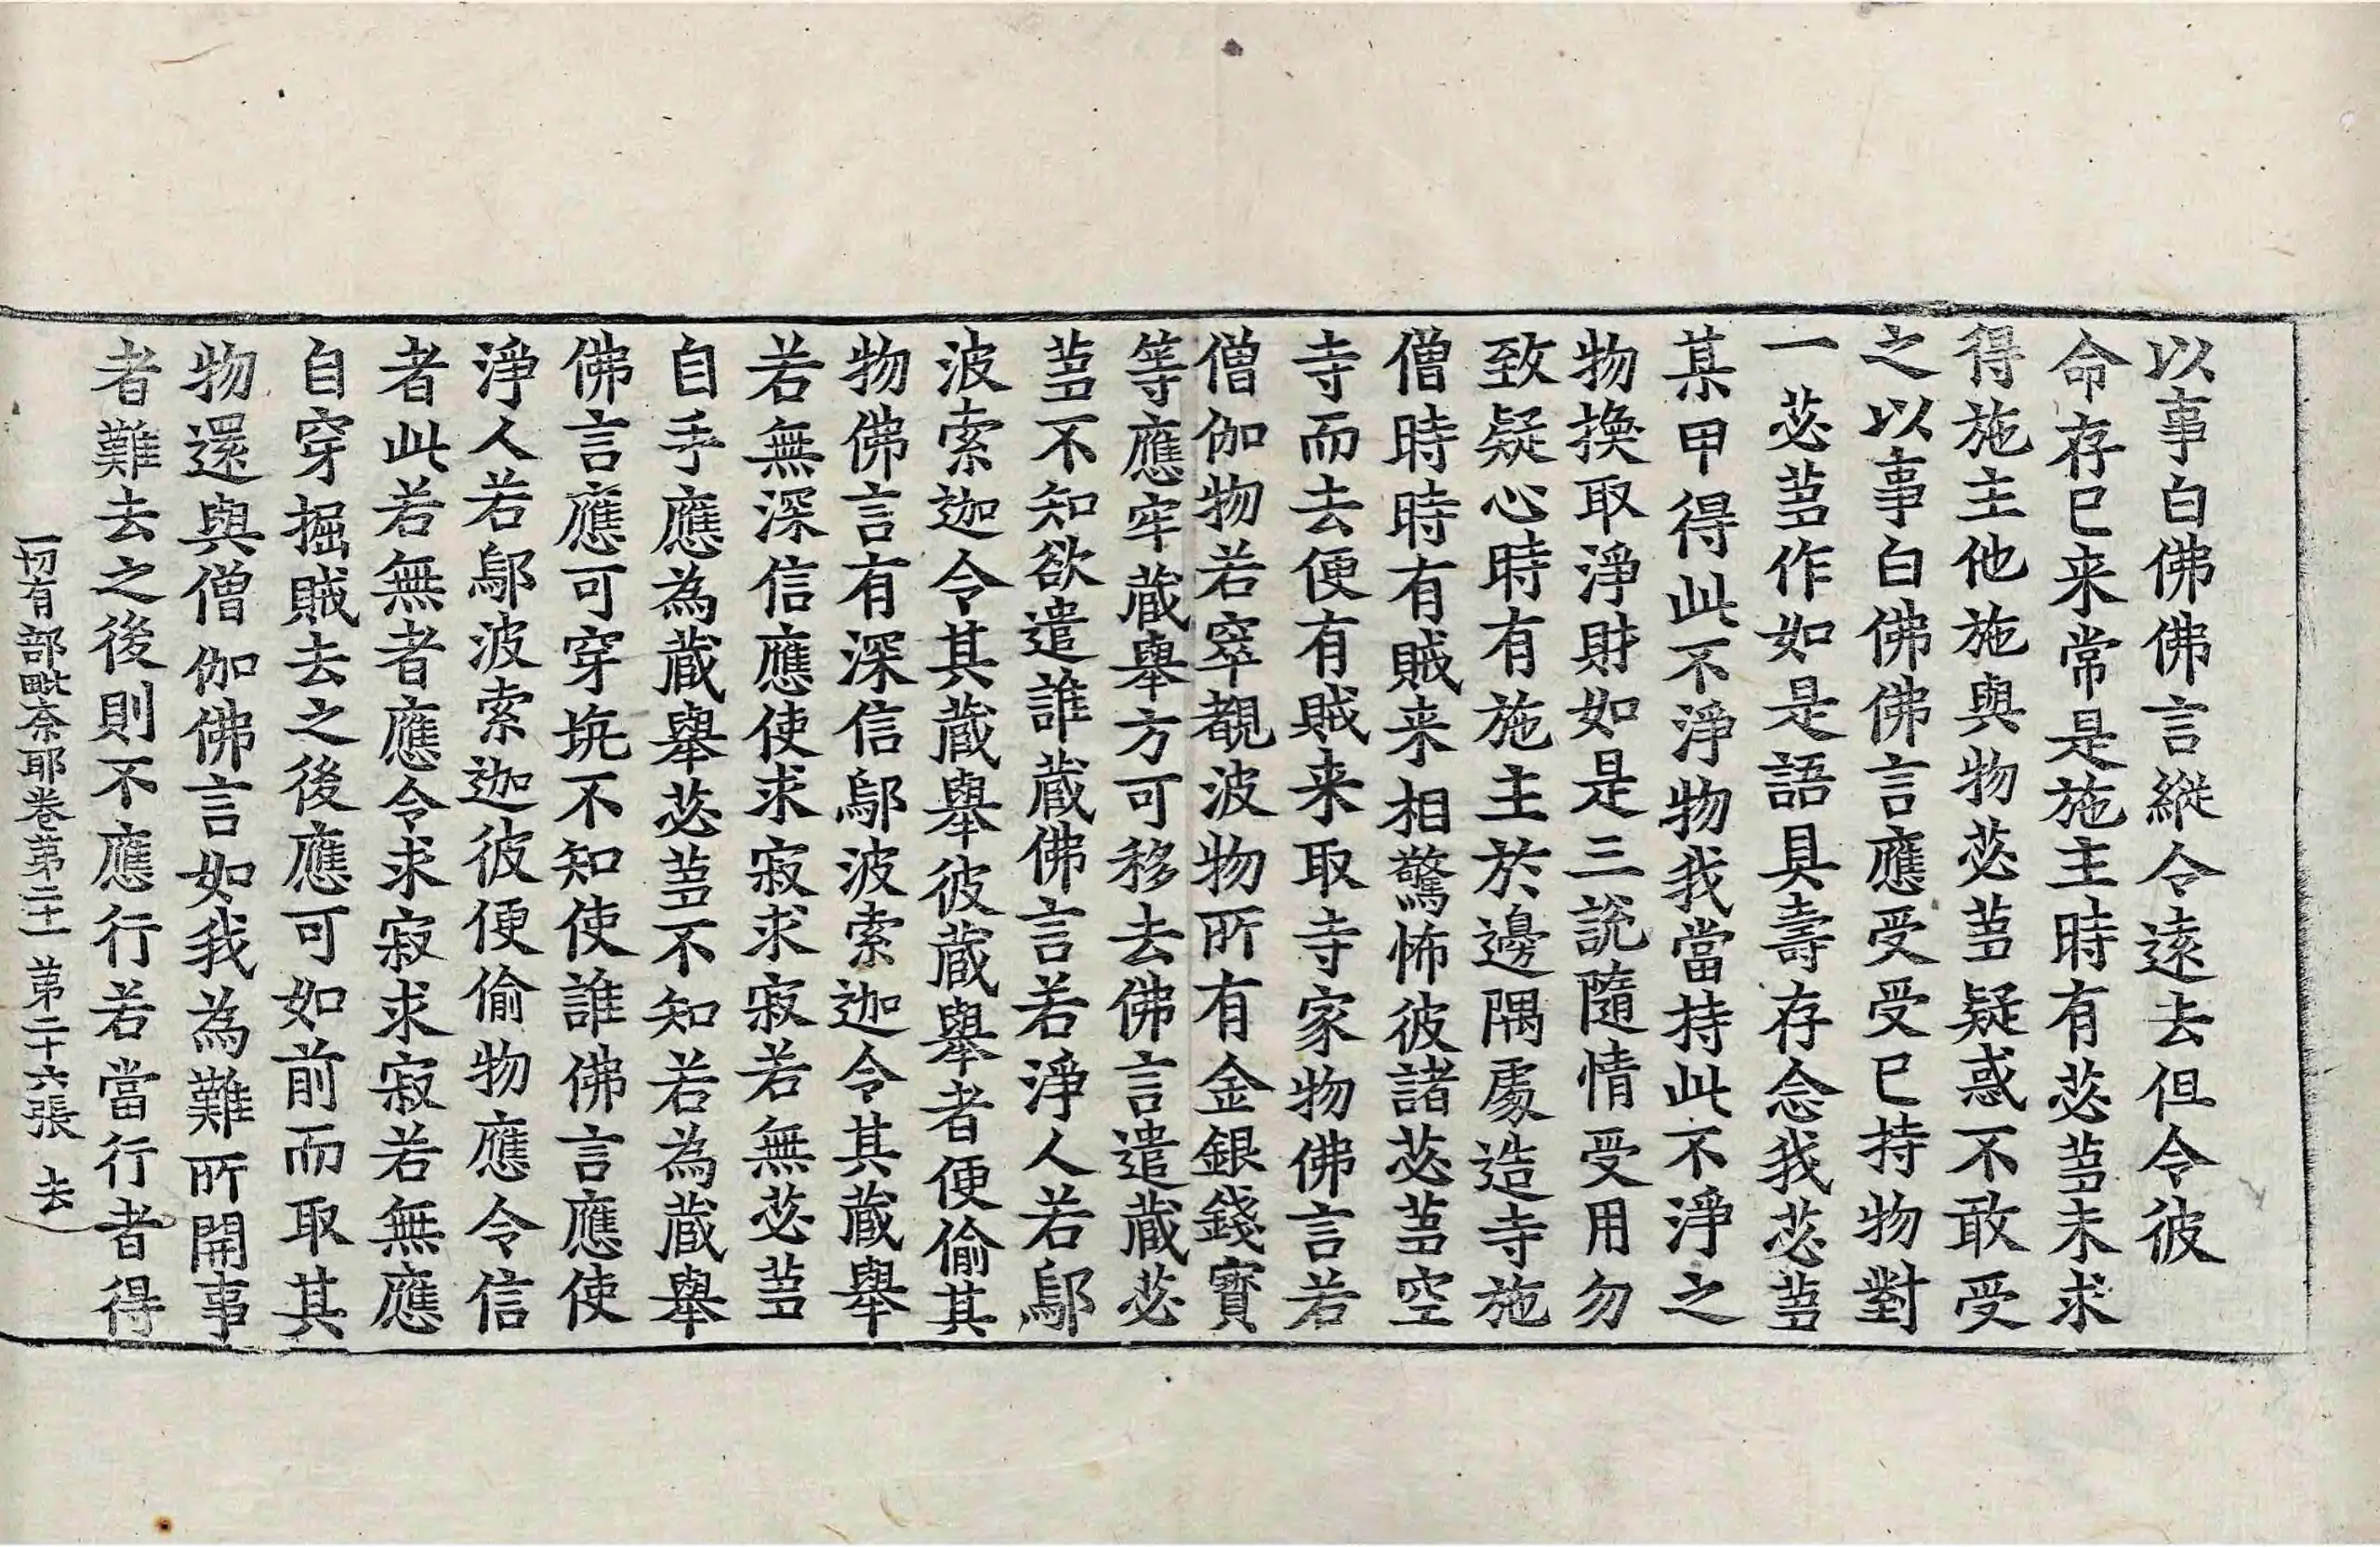 以事白佛佛言縱令遠去但令彼
命存已来常是施主時有苾蒭未求
得施主他施與物苾蒭疑惑不敢受
之以事白佛佛言應受受已持物對
一苾蒭作如是語具壽存念我苾蒭
某甲得此不淨物我當持此不淨之
物換取淨財如是三説隨情受用勿
致疑心時有施主於邊隅處造寺施
僧時時有賊来相驚怖彼諸苾蒭空
寺而去便有賊来取寺家物佛言若
僧伽物若窣覩波物所有金銀錢寳
等應牢蔵舉方可移去佛言遣蔵苾
蒭不知欲遣誰蔵佛言若淨人若鄔
波索迦令其蔵舉彼蔵舉者便偷其
物佛言有深信鄔波索迦令其蔵舉
若無深信應使求寂求寂若無苾蒭
自手應為蔵舉苾蒭不知若為蔵舉
佛言應可穿坑不知使誰佛言應使
淨人若鄔波索迦彼便偷物應令信
者此若無者應令求寂求寂若無應
自穿掘賊去之後應可如前而取其
物還與僧伽佛言如我為難所開事
者難去之後則不應行若當行者得
一切有部毗奈耶卷第二十一 第二十六張 去